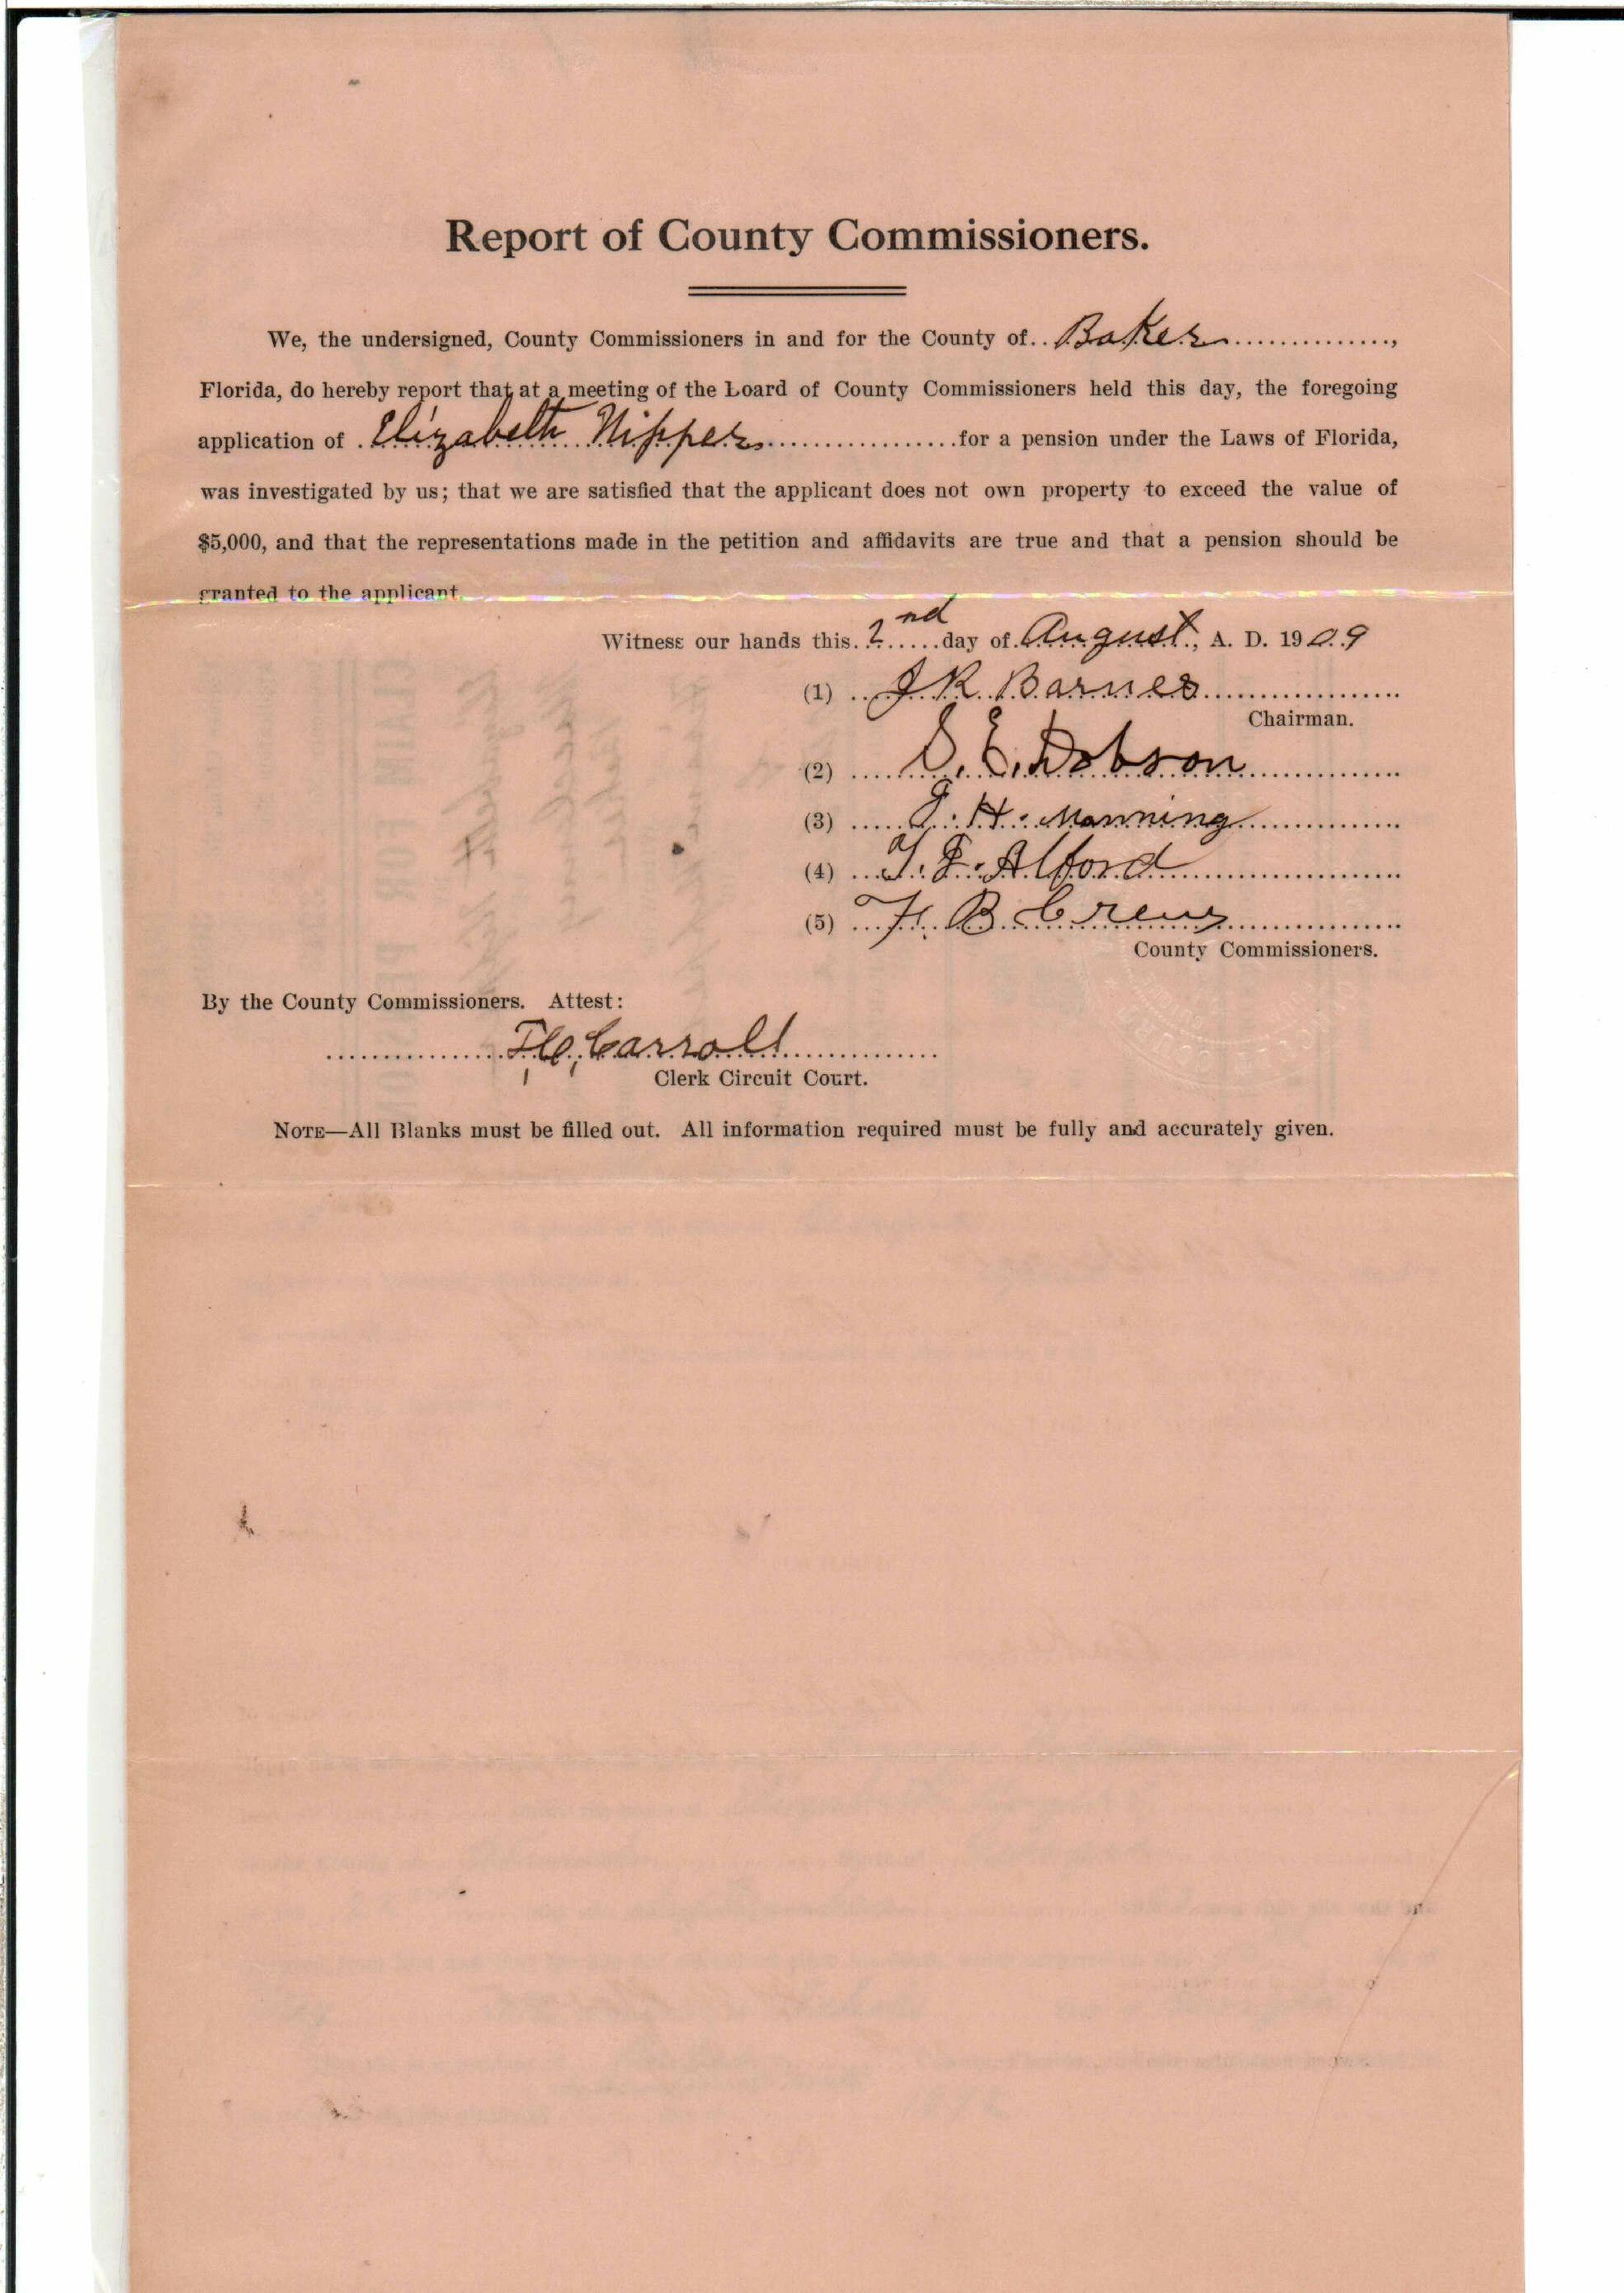 Report of County Commissioners.
We, the undersigned, County Commissioners in and for the County of Baker,
Florida, do hereby report that at a meeting of the Loard of County Commissioners held this day, the foregoing
application of Elizabeth Nipper for a pension under the Laws of Florida,
was investigated by us; that we are satisfied that the applicant does not own property to exceed the value of
$5,000, and that the representations made in the petition and affidavits are true and that a pension should be
granted to the applicant.
Witness our hands this 2nd day of August, A. D. 1909
(1) J R Barnes
Chairman.
(2) S. E. Dobson
(3) J. H. Manning
(4) T. J. Alford
(5) H. B. Crews
County Commissioners.
By the County Commissioners. Attest:
Carroll
Clerk Circuit Court.
NOTE—All Blanks must be filled out. All information required must be fully and accurately given.